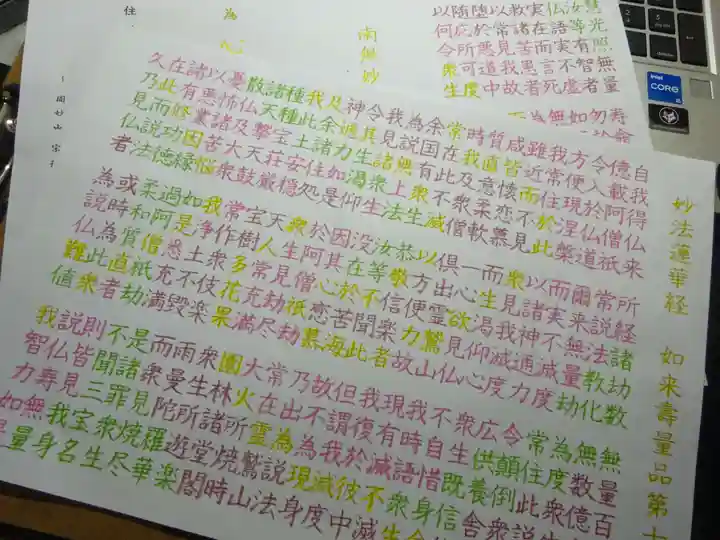 妙法蓮華経 如来寿量品第十
自我得仏来 所経諸劫数 無量百
億載阿僧祇 常説法教化 無数億
令入於仏道 爾来無量劫 為度衆
方便現涅槃 而実不滅度 常住此説
我常住於此 以諸神通力 令顛倒衆
雖近而不見 衆見我滅度 広供養舎
咸皆懐恋慕 而生渇仰心 衆生既信
質直意柔軟 一心欲見仏 不自惜身
時我及衆僧 倶出霊鷲山 我時語衆
常在此不滅 以方便力故 現有滅不
余国有衆生 恭敬信楽者 我復於彼
為説無上法 汝等不聞此 但謂我滅度
我見諸衆生 没在於苦海 故不為現身
令其生渇仰 因其心恋慕 乃出為説法
神通力如是 於阿僧祇劫 常在霊鷲山
及余諸住処 衆生見劫尽 大火所焼時
我此土安穏 天人常充満 園林諸堂閣
種種宝荘厳 宝樹多花果 衆生所遊楽
諸天撃天鼓 常作衆伎楽 雨曼陀羅華
散仏及大衆 我浄土不毀 而衆見焼尽
憂怖諸苦悩 如是悉充満 是諸罪衆生
以悪業因縁 過阿僧祇劫 不聞三宝名
諸有修功徳 柔和質直者 則皆見我身
在此而説法 或時為此衆 説仏寿無量
久乃見仏者 為説仏難値 我智力如是
慧光照無量 寿
汝等有智者 勿
仏語実不虚 如
実在而言死 無
救諸苦患者 為
以常見我故
堕於悪道中
随応所可度
以何令衆生
南無妙
為
心
住
intel
CORE
i5